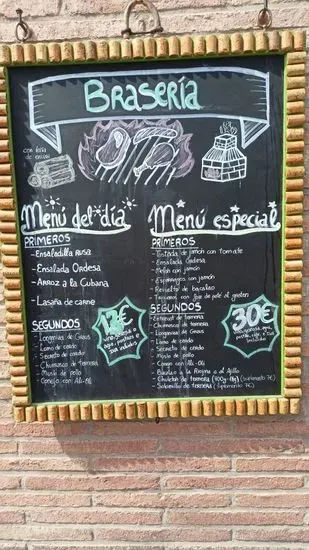 Brasería
con leña
de encina
Menú del día
PRIMEROS
- Ensaladilla Rusa
- Ensalada Ordesa
- Arroz a la Cubana
- Lasaña de carne
SEGUNDOS
- Longaniza de Graus
- Lomo de cerdo
- Secreto de cerdo
- Churrasco de ternera
- Muslo de pollo
- Conejo con Ali-Oli
13€
Menú especial
PRIMEROS
- Tostada de jamón con tomate
- Ensalada Ordesa
- Melón con jamón
- Espárragos con jamón
- Revuelto de bacalao
SEGUNDOS
- Entrecot de ternera
- Churrasco de ternera
- Longaniza de Graus
- Lomo de cerdo
- Secreto de cerdo
- Muslo de pollo
- Conejo con Ali-Oli
- Bacalao a la
- Chuletón de ternera (Suplemento 7€)
- Solomillo de ternera (Suplemento 7€)
30€